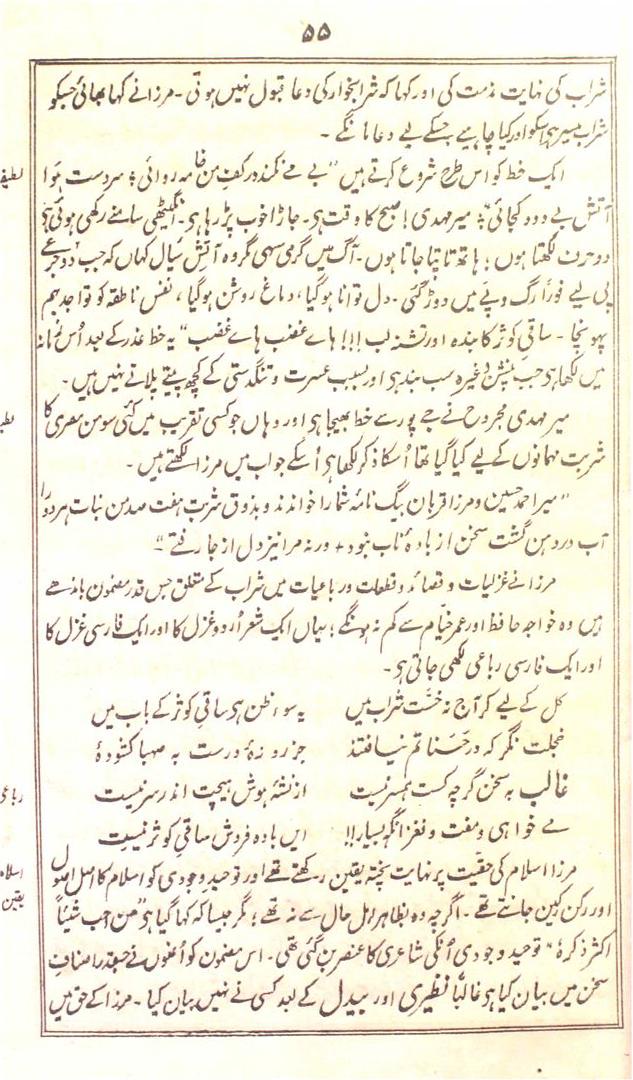 ۵۵
شراب کی نہایت مذمت کی اور کہا کہ شرابخوار کی دعا قبول نہیں ہوتی ۔ مرزا نے کہا بھائی جسکو
شراب میسر ہی اسکو اور کیا چاہیے جسکے لیے دعا مانگے ۔
ایک خط کو اس طرح شروع کرتے ہیں "بے مے نکند در کف من خامہ روائی ؛ سردست ہوا
آتش بے دود کجائی ؛ میر مہدی! صبح کا وقت ہی ۔ جاڑا خوب پڑ رہا ہی ۔ انگیٹھی سامنے رکھی ہوئی ہی
دو حرف لکھتا ہوں ؛ ہاتھ تاپتا جاتا ہوں ۔ آگ میں گرمی سہی مگر وہ آتش سیال کہاں کہ جب دو جرعے
پی لیے فوراً رگ و پے میں دوڑ گئی ۔ دل توانا ہوگیا ، دماغ روشن ہوگیا ، نفس ناطقہ کو تواجد بہم
پہونچا ۔ ساقی کوثر کا بندہ اور تشنہ لب !!! ہاے غضب ہاے غضب" یہ خط غدر کے بعد اُس زمانہ
میں لکھا ہی جب پنشن وغیرہ سب بند ہی اور بسبب عسرت و تنگدستی کے کچھ پیتے پلاتے نہیں ہیں ۔
میر مہدی مجروح نے جے پور سے خط بھیجا ہی اور وہاں جو کسی تقریب میں کئی سو من مصری کا
شربت مہمانوں کے لیے کیا گیا تھا اُسکا ذکر لکھا ہی اُسکے جواب میں مرزا لکھتے ہیں ۔
"میر احمد حسین و مرزا قربان بیگ نامۂ شمارا خواندند و بذوق شربت ہفت صد من نبات ہر دو را
آب در دہن گشت سخن از بادۂ ناب نبود + ورنہ مرا نیز دل از جا رفتے"
مرزا نے غزلیات و قصائد و قطعات و رباعیات میں شراب کے متعلق جس قدر مضمون باندھے
ہیں وہ خواجہ حافظ اور عمر خیام سے کم نہ ہونگے ؛ یہاں ایک شعر اُردو غزل کا اور ایک فارسی غزل کا
اور ایک فارسی رباعی لکھی جاتی ہی ۔
کل کے لیے کر آج نہ خسّت شراب میں یہ سوء ظن ہی ساقی کوثر کے باب میں
خجلت نگر کہ در حسناتم نیافتند جز روزۂ درست بہ صہبا کشودۂ
غالب بہ سخن گرچہ کست ہمسر نیست از نشۂ ہوش ہیچت اندر سر نیست
مے خواہی و مفت و نغز وانگہ بسیار!! ایں بادہ فروش ساقی کوثر نیست
مرزا اسلام کی حقیت پر نہایت پختہ یقین رکھتے تھے اور توحید وجودی کو اسلام کا اصل اصول
اور رکن رکین جانتے تھے ۔ اگرچہ وہ بظاہر اہل حال سے نہ تھے ؛ مگر جیسا کہ کہا گیا ہی "من احب شیئاً
اکثر ذکرہٗ" توحید وجودی اُنکی شاعری کا عنصر بن گئی تھی ۔ اس مضمون کو اُنھوں نے جسقدر اصناف
سخن میں بیان کیا ہی غالباً نظیری اور بیدل کے بعد کسی نے نہیں بیان کیا ۔ مرزا کے حق میں